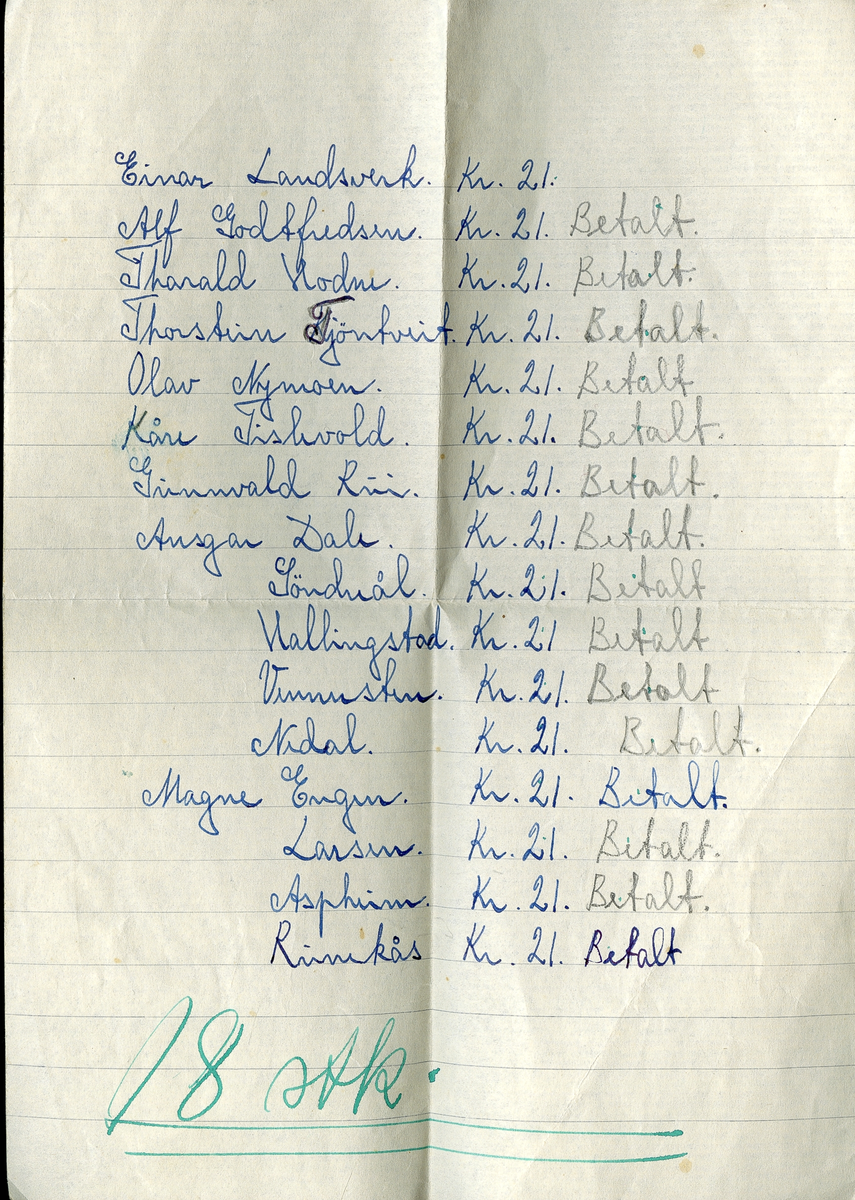 Einar Landsverk. Kr. 21.
Alf Godtfredsen. Kr. 21. Betalt.
Tharald Hodne. Kr. 21. Betalt.
Thorstein Tjöntveit. Kr. 21. Betalt.
Olav Nymoen. Kr. 21. Betalt
Kåre Fiskvold. Kr. 21. Betalt.
Gunnvald Rui. Kr. 21. Betalt.
Ansgar Dale. Kr. 21. Betalt.
Kr. 21. Betalt
Hallingstad. Kr. 21 Betalt
Kr. 21. Betalt
Nedal. Kr. 21. Betalt.
Magne Engen. Kr. 21. Betalt.
Larsen. Kr. 21. Betalt.
Aspheim. Kr. 21. Betalt.
Kr. 21. Betalt
18 stk.